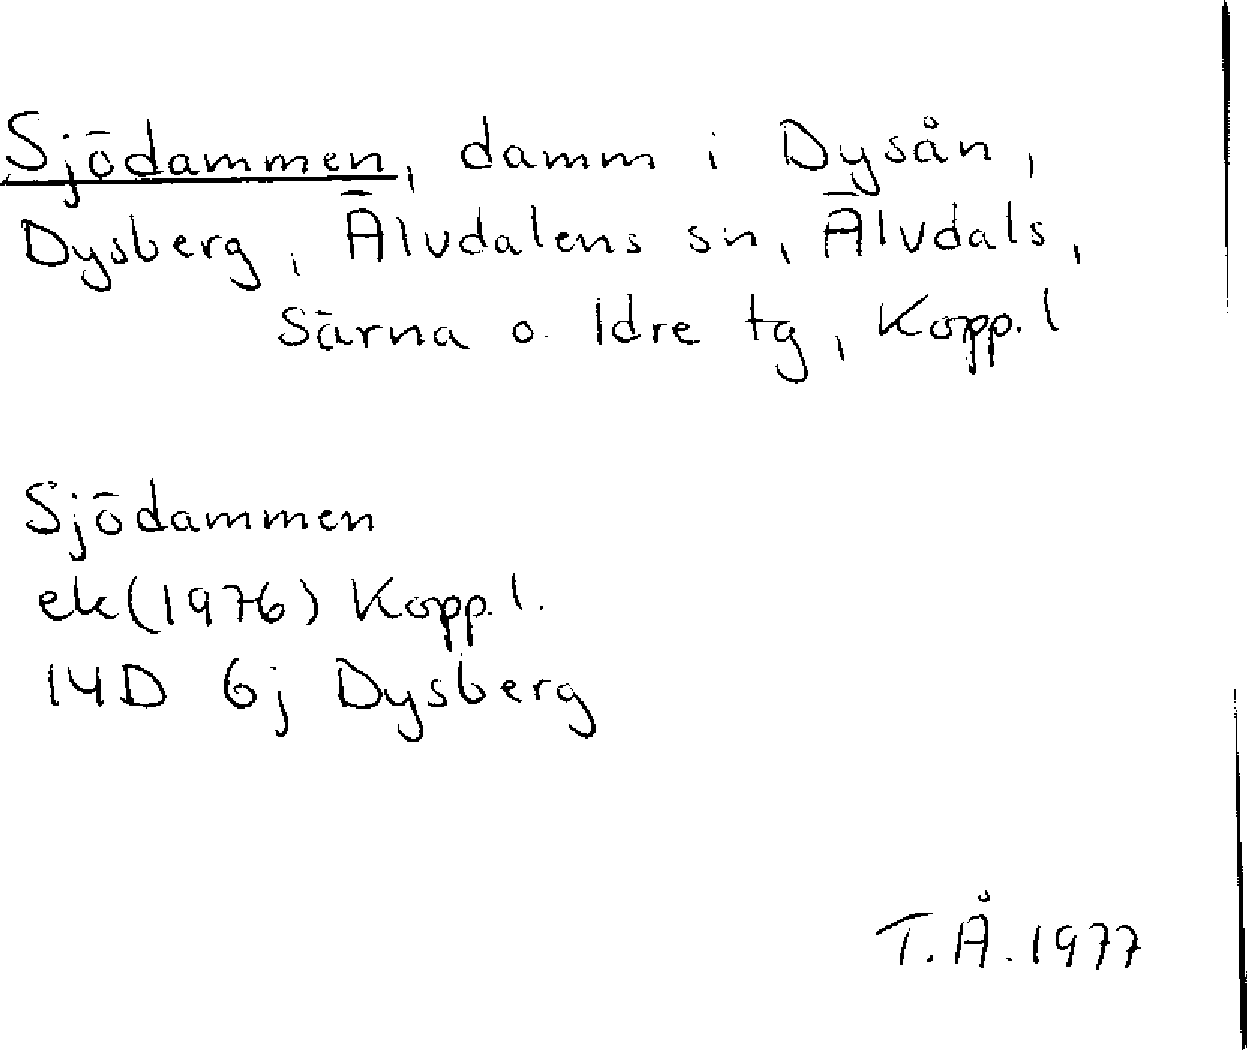 Sjödammen, damm i Dysån,
Dysberg, Älvdalens sn, Älvdals,
Särna o. Idre tg, Kopp. l
Sjödammen
ek (1976) Kopp. l.
14D 6j Dysberg
T.Å. 1977